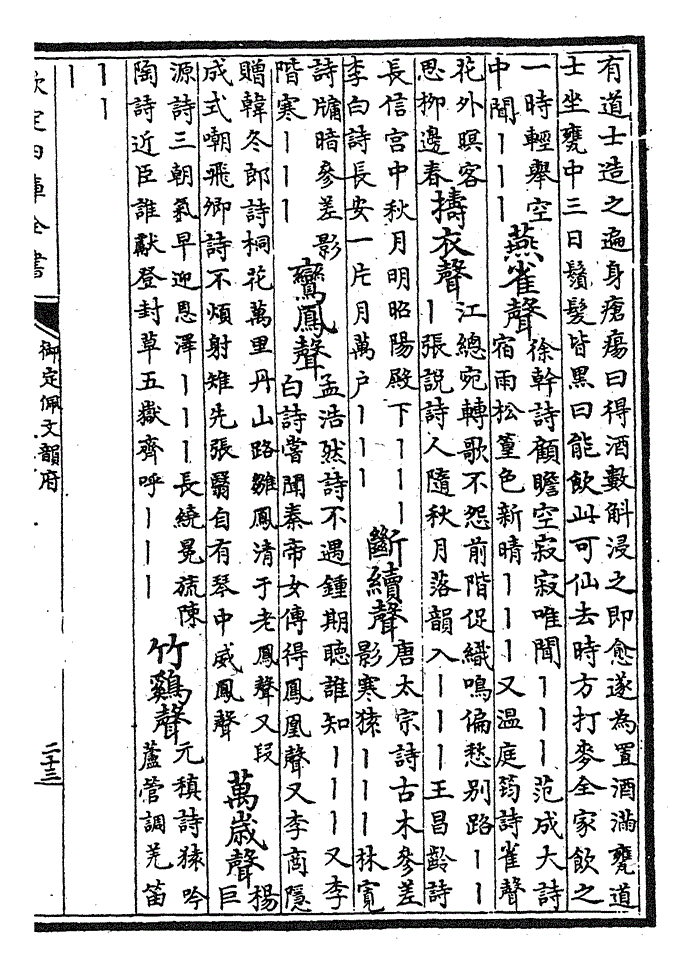 有道士造之遍身瘡瘍曰得酒數斛浸之即愈遂為置酒滿甕道
士坐甕中三日鬚髮皆黑曰能飲此可仙去時方打麥全家飲之
一時輕舉空
中聞丨丨丨
燕雀聲
徐幹詩顧瞻空寂寂唯聞丨丨丨范成大詩
宿雨松篁色新晴丨丨丨又溫庭筠詩雀聲
花外暝客
思柳邊春
擣衣聲
江總宛轉歌不怨前階促織鳴偏愁別路丨丨
丨張說詩人隨秋月落韻入丨丨丨王昌齡詩
長信宮中秋月明昭陽殿下丨丨丨
李白詩長安一片月萬户丨丨丨
斷續聲
唐太宗詩古木參差
影寒猿丨丨丨林寬
詩牖暗參差影
階寒丨丨丨
鸞鳳聲
孟浩然詩不遇鍾期聽誰知丨丨丨又李
白詩嘗聞秦帝女傳得鳳凰聲又李商隱
贈韓冬郎詩桐花萬里丹山路雛鳳清于老鳳聲又段
成式嘲飛卿詩不煩射雉先張翳自有琴中威鳳聲
萬歲聲
楊
巨
源詩三朝氣早迎恩澤丨丨丨長繞冕旒陳
陶詩近臣誰獻登封草五嶽齊呼丨丨丨
竹鷄聲
元稹詩猿吟
蘆管調羌笛
丨丨
丨
欽定四庫全書
御定佩文韻府
二十三